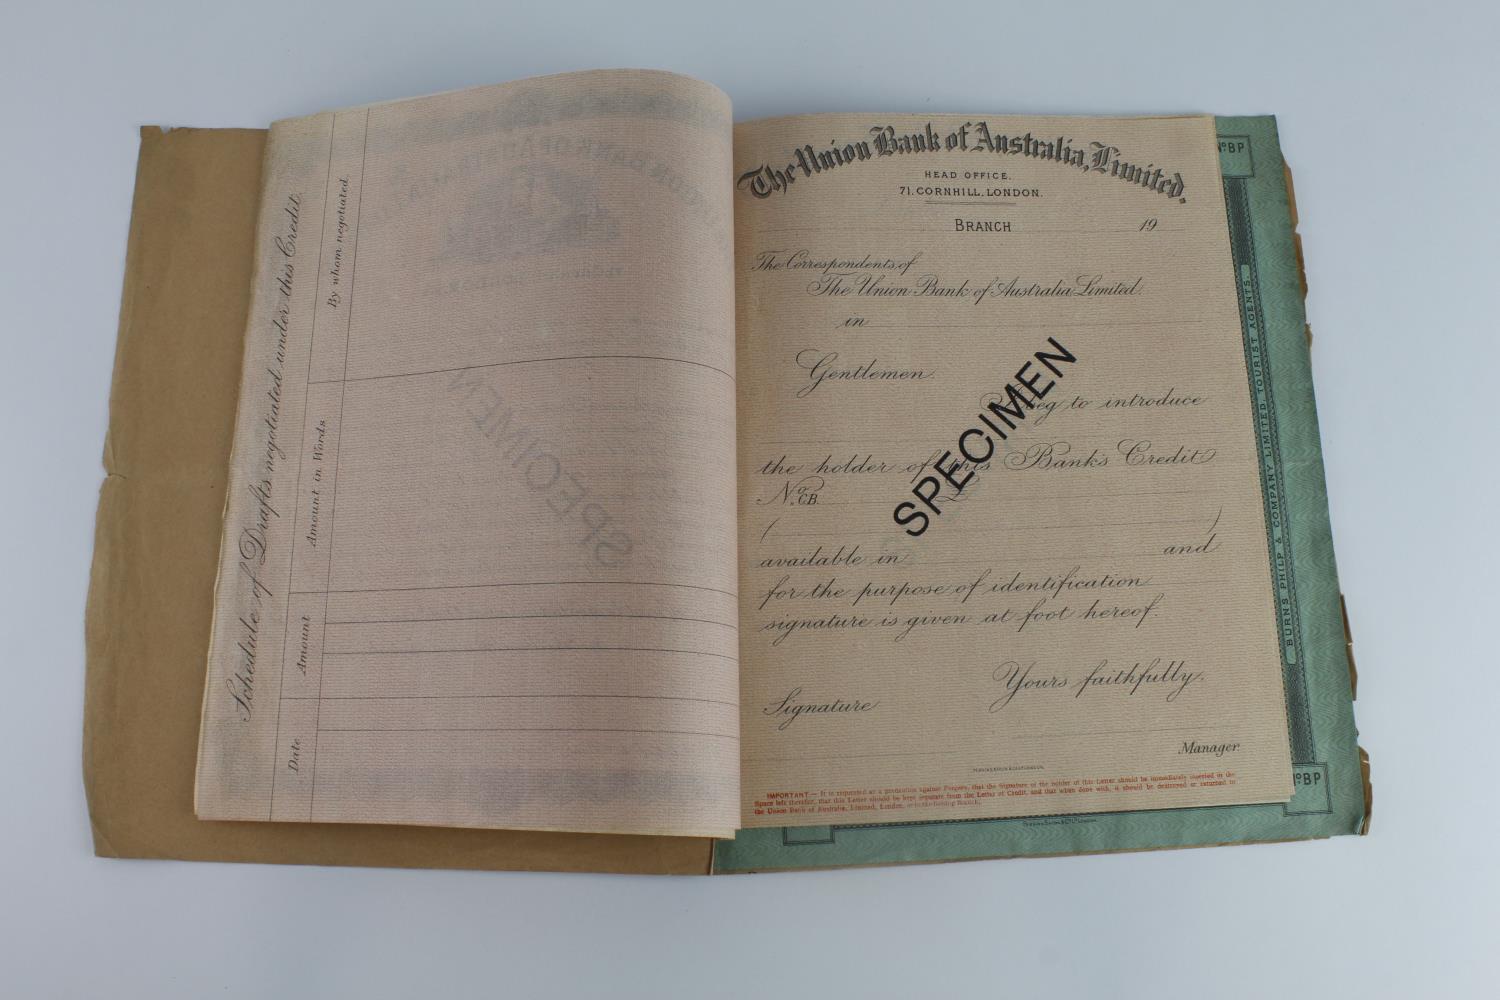 Schedule of Drafts negotiated under this Credit.
Date
Amount
Amount in Words
By whom negotiated.
SPECIMEN
The Union Bank of Australia, Limited.
HEAD OFFICE.
71, CORNHILL, LONDON.
BRANCH 19
The Correspondents of
The Union Bank of Australia Limited.
in
Gentlemen.
beg to introduce
the holder of this Bank's Credit
No. CB.
( )
available in and
for the purpose of identification
signature is given at foot hereof.
Yours faithfully.
Signature
Manager.
SPECIMEN
IMPORTANT.— It is requested as a precaution against Forgery, that the Signature of the holder of this Letter should be immediately inserted in the
Space left therefor, that this Letter should be kept separate from the Letter of Credit, and that when done with, it should be destroyed or returned to
the Union Bank of Australia, Limited, London, or
No BP
BURNS PHILP & COMPANY LIMITED, TOURIST AGENTS.
No BP